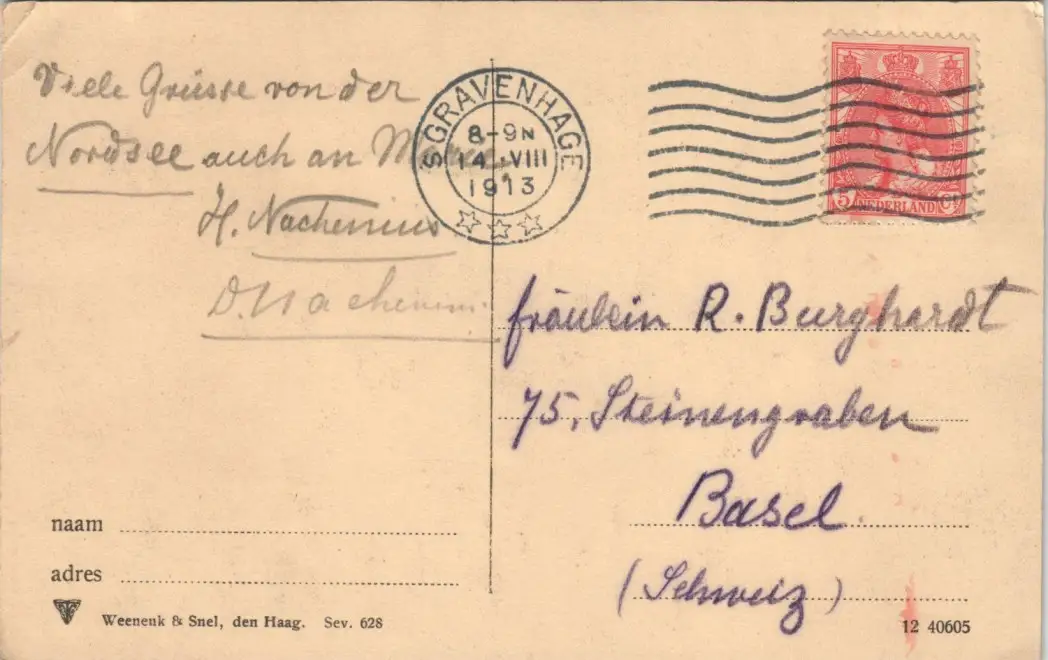 Viele Grüsse von der
Nordsee auch an
H. Nachenius
D. Nachenius
'S GRAVENHAGE
8-9 N
14 VIII
1913
5 NEDERLAND Ct
fräulein R. Burghardt
75, Steinengraben
Basel
(Schweiz)
naam
adres
Weenenk & Snel, den Haag. Sev. 628
12 40605